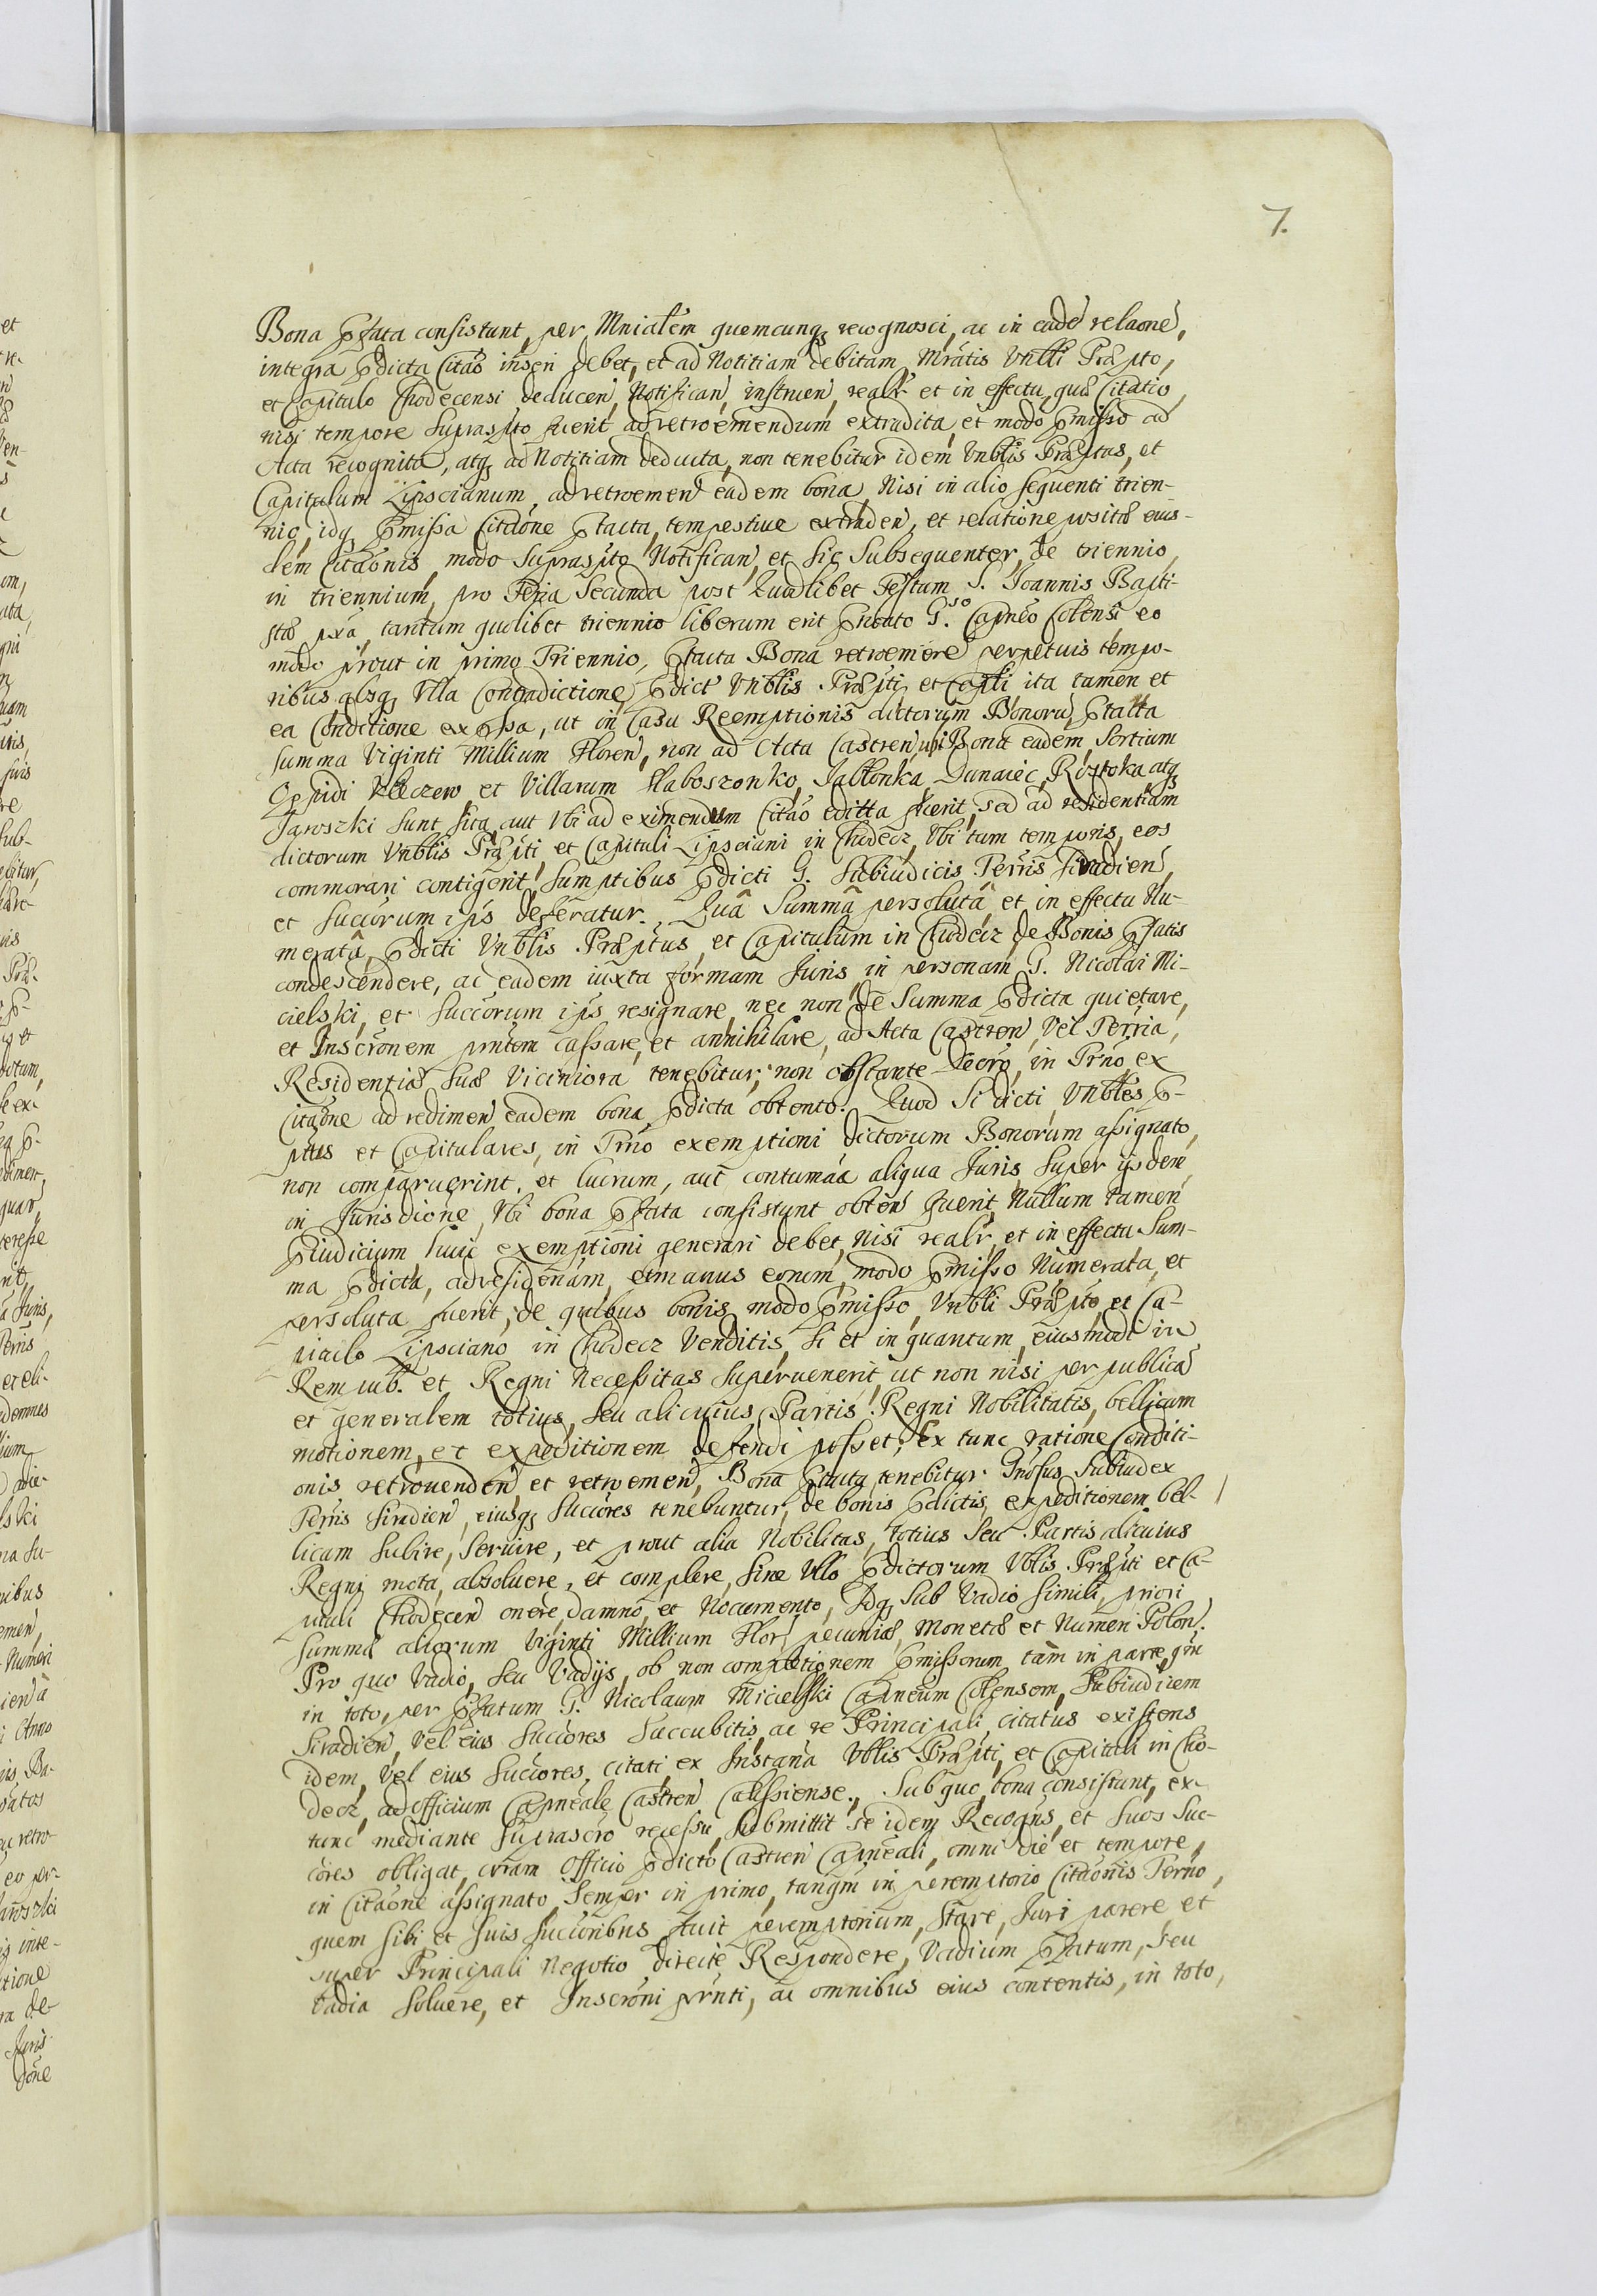 7.
Bona Pfata consistunt, per Mnialem quemcunq recognosci, ac in eade relaone,
integra Pdicta Citao inseri debet, et ad Notitiam debitam Mratis Vnbli Præpto,
et Capitulo Chodecensi deducen, Notifican, instruen, realr et in effectu, quæ Citatio
nisi tempore supraspto fuerit ad retroemendum extradita, et modo Pmisso ad
Acta recognita, atq ad Notitiam deducta, non tenebitur idem Vnblis Præptus, et
Capitulum Lipscianum, ad retroemen eadem bona, Nisi in alio sequenti trien-
nio, idq Pmissa Citaone Ptacta, tempestiue extraden, et relatione posita eius-
dem Citaonis, modo supraspto Notifican, et sic Subsequenter, de triennio
in triennium, pro Feria Secunda post Quodlibet Festum S. Joannis Bapti-
stæ pxa, tantum quolibet triennio liberum erit Pnoato G.so Capneo Colensi eo
modo prout in primo Triennio, Ptacta Bona retroemere perpetuis tempo-
ribus absq Vlla Contradictione, Pdict Vnblis Præpti, et Capli ita tamen et
ea Conditione expssa, ut in Casu Reemptionis dictorum Bonoru, Ptacta
summa Viginti Millium Floren, non ad Acta Castren ubi Bona eadem, Sortium
Oppidi Kleczew et Villarum Slaboszonko, Jablonka, Dunaiec, Roztoka atq
Jaroszki sunt sita, aut Vbi ad eximendum Citao editta fuerit, sed ad residentiam
dictorum Vnblis Præpti, et Capituli Lipsciani in Chodecz, Vbi tum temporis, eos
commorari contigerit, sumptibus Pdicti G. Subiudicis Terris Siradien,
et succorum ips deferatur. Quâ Summâ persolutâ et in effectu Nu-
meratâ, Pdicti Vnblis Præptus, et Capitulum in Chodecz, de Bonis Pfatis
condescendere, ac eadem iuxta formam Juris, in personam G. Nicolai Mi-
cielski, et Succorum ips resignare, nec non de Summa Pdicta quietare,
et Inscronem pntem cassare, et annihilare, ad Acta Castren, Vel Terria,
Residentiæ Suæ Viciniora tenebitur, non obstante Decro, in Trno, ex
Citaone ad redimen eadem bona, Pdicta obtento. Quod Si dicti Vnbles P-
pttus et Capitulares, in Trno exemptioni dictorum Bonorum assignato,
non comparuerint, et lucrum, aut contumaa aliqua Juris, super ijsdem
in Jurisdicione, Vbi bona Pfata consistunt obten fuerit, Nullum tamen
Piudicium huic exemptioni generari debet, Nisi realr, et in effectu Sum-
ma Pdicta, ad residenam, et manus eorum, modo Pmisso Numerata, et
persoluta fuerit; de quibus bonis modo Pmisso, Vnbli Præpto, et Ca-
pitulo Lipsciano in Chodecz Venditis, si et in quantum, eiusmodi in
Rempub. et Regni Necessitas superuenerit, ut non nisi per publica
et generalem totius, seu alicuius Partis Regni Nobilitatis, bellicam
motionem, et expeditionem defendi posset, ex tunc ratione Conditi-
onis retrouenden et retroemen, Bona Ptacta tenebitur Gnosus Subiudex
Terris Siradien, eiusq Succores tenebuntur, de bonis Pdictis, expeditionem bel-
licam subire, seruire, et prout alia Nobilitas, totius seu Partis alicuius
Regni mota, absoluere, et complere, sine Vllo Pdictorum Vblis Præpti et Ca-
puli Chodecen onere, damno, et Nocumento, Idq sub Vadio simili, priori
Summa aliorum Viginti Millium Flor pecuniæ, Monetæ et Numeri Polon.
Pro quo Vadio, seu Vadijs, ob non completionem Pmissorum, tam in parte, qm
in toto, per Pfatum G. Nicolaum Micielski Capneum Colensem, Subiudicem
Siradien, Vel eius Succores Succubitis, ac re Principali, citatus existens
idem, Vel eius Succores, citati, ex Instana Vblis Præpti, et Capituli in Cho-
decz, ad Officium Capneale Castren Calissiense, Sub quo bona consistunt, ex-
tunc mediante Suprascro recessu, submittit se idem Recogns, et suos Suc-
cores obligat, coram Officio Pdicto Castren Capneali, omni die et tempore,
in Citaone assignato, semper in primo, tanqm in peremptorio Citaonis Terno,
quem sibi et suis succoribus fecit peremptorium, stare, Juri parere et
super Principali Negotio, directe Respondere, Vadium Pfatum, seu
Vadia soluere, et Inscroni pnti, ac omnibus eius contentis, in toto,